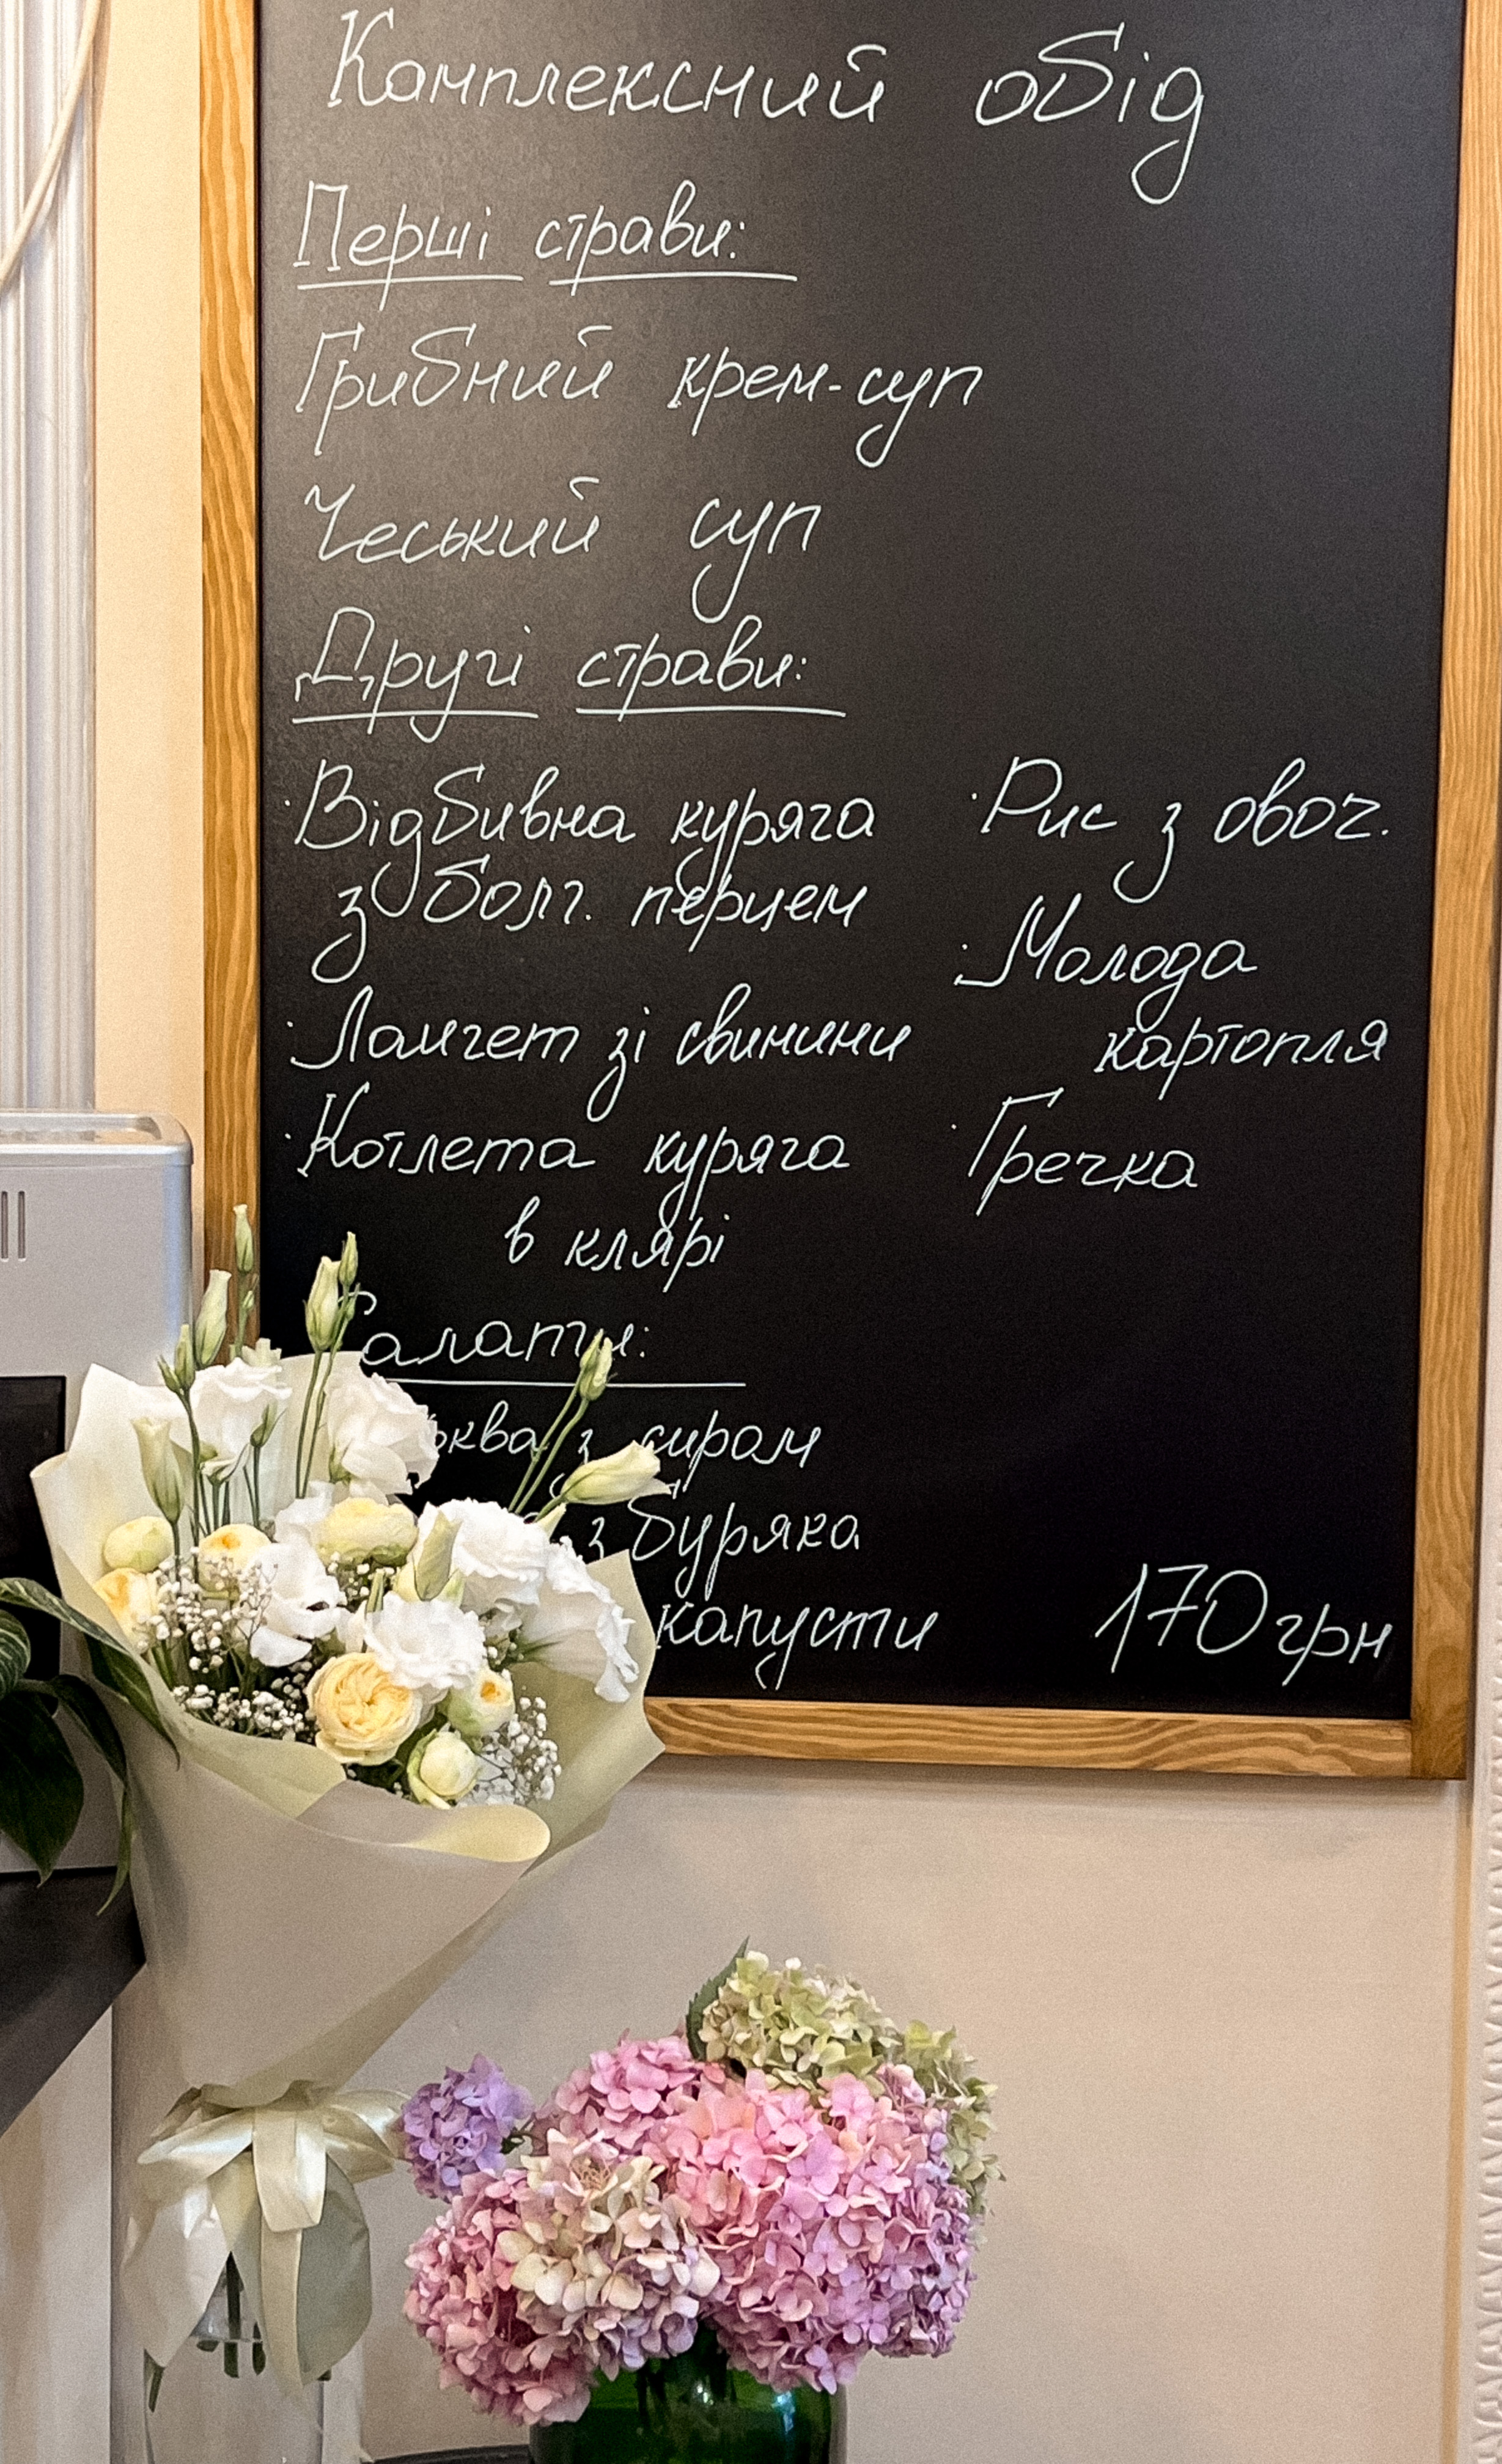 Комплексний обід
Перші страви:
Грибний крем-суп
Чеський суп
Другі страви:
·Відбивна куряча
з болг. перцем
·Лангет зі свинини
·Котлета куряча
в клярі
·Рис з овоч.
·Молода
картопля
·Гречка
Салати:
з сиром
з буряка
капусти
170 грн